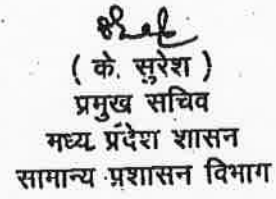 ( के. सुरेश )
प्रमुख सचिव
मध्य प्रदेश शासन
सामान्य प्रशासन विभाग